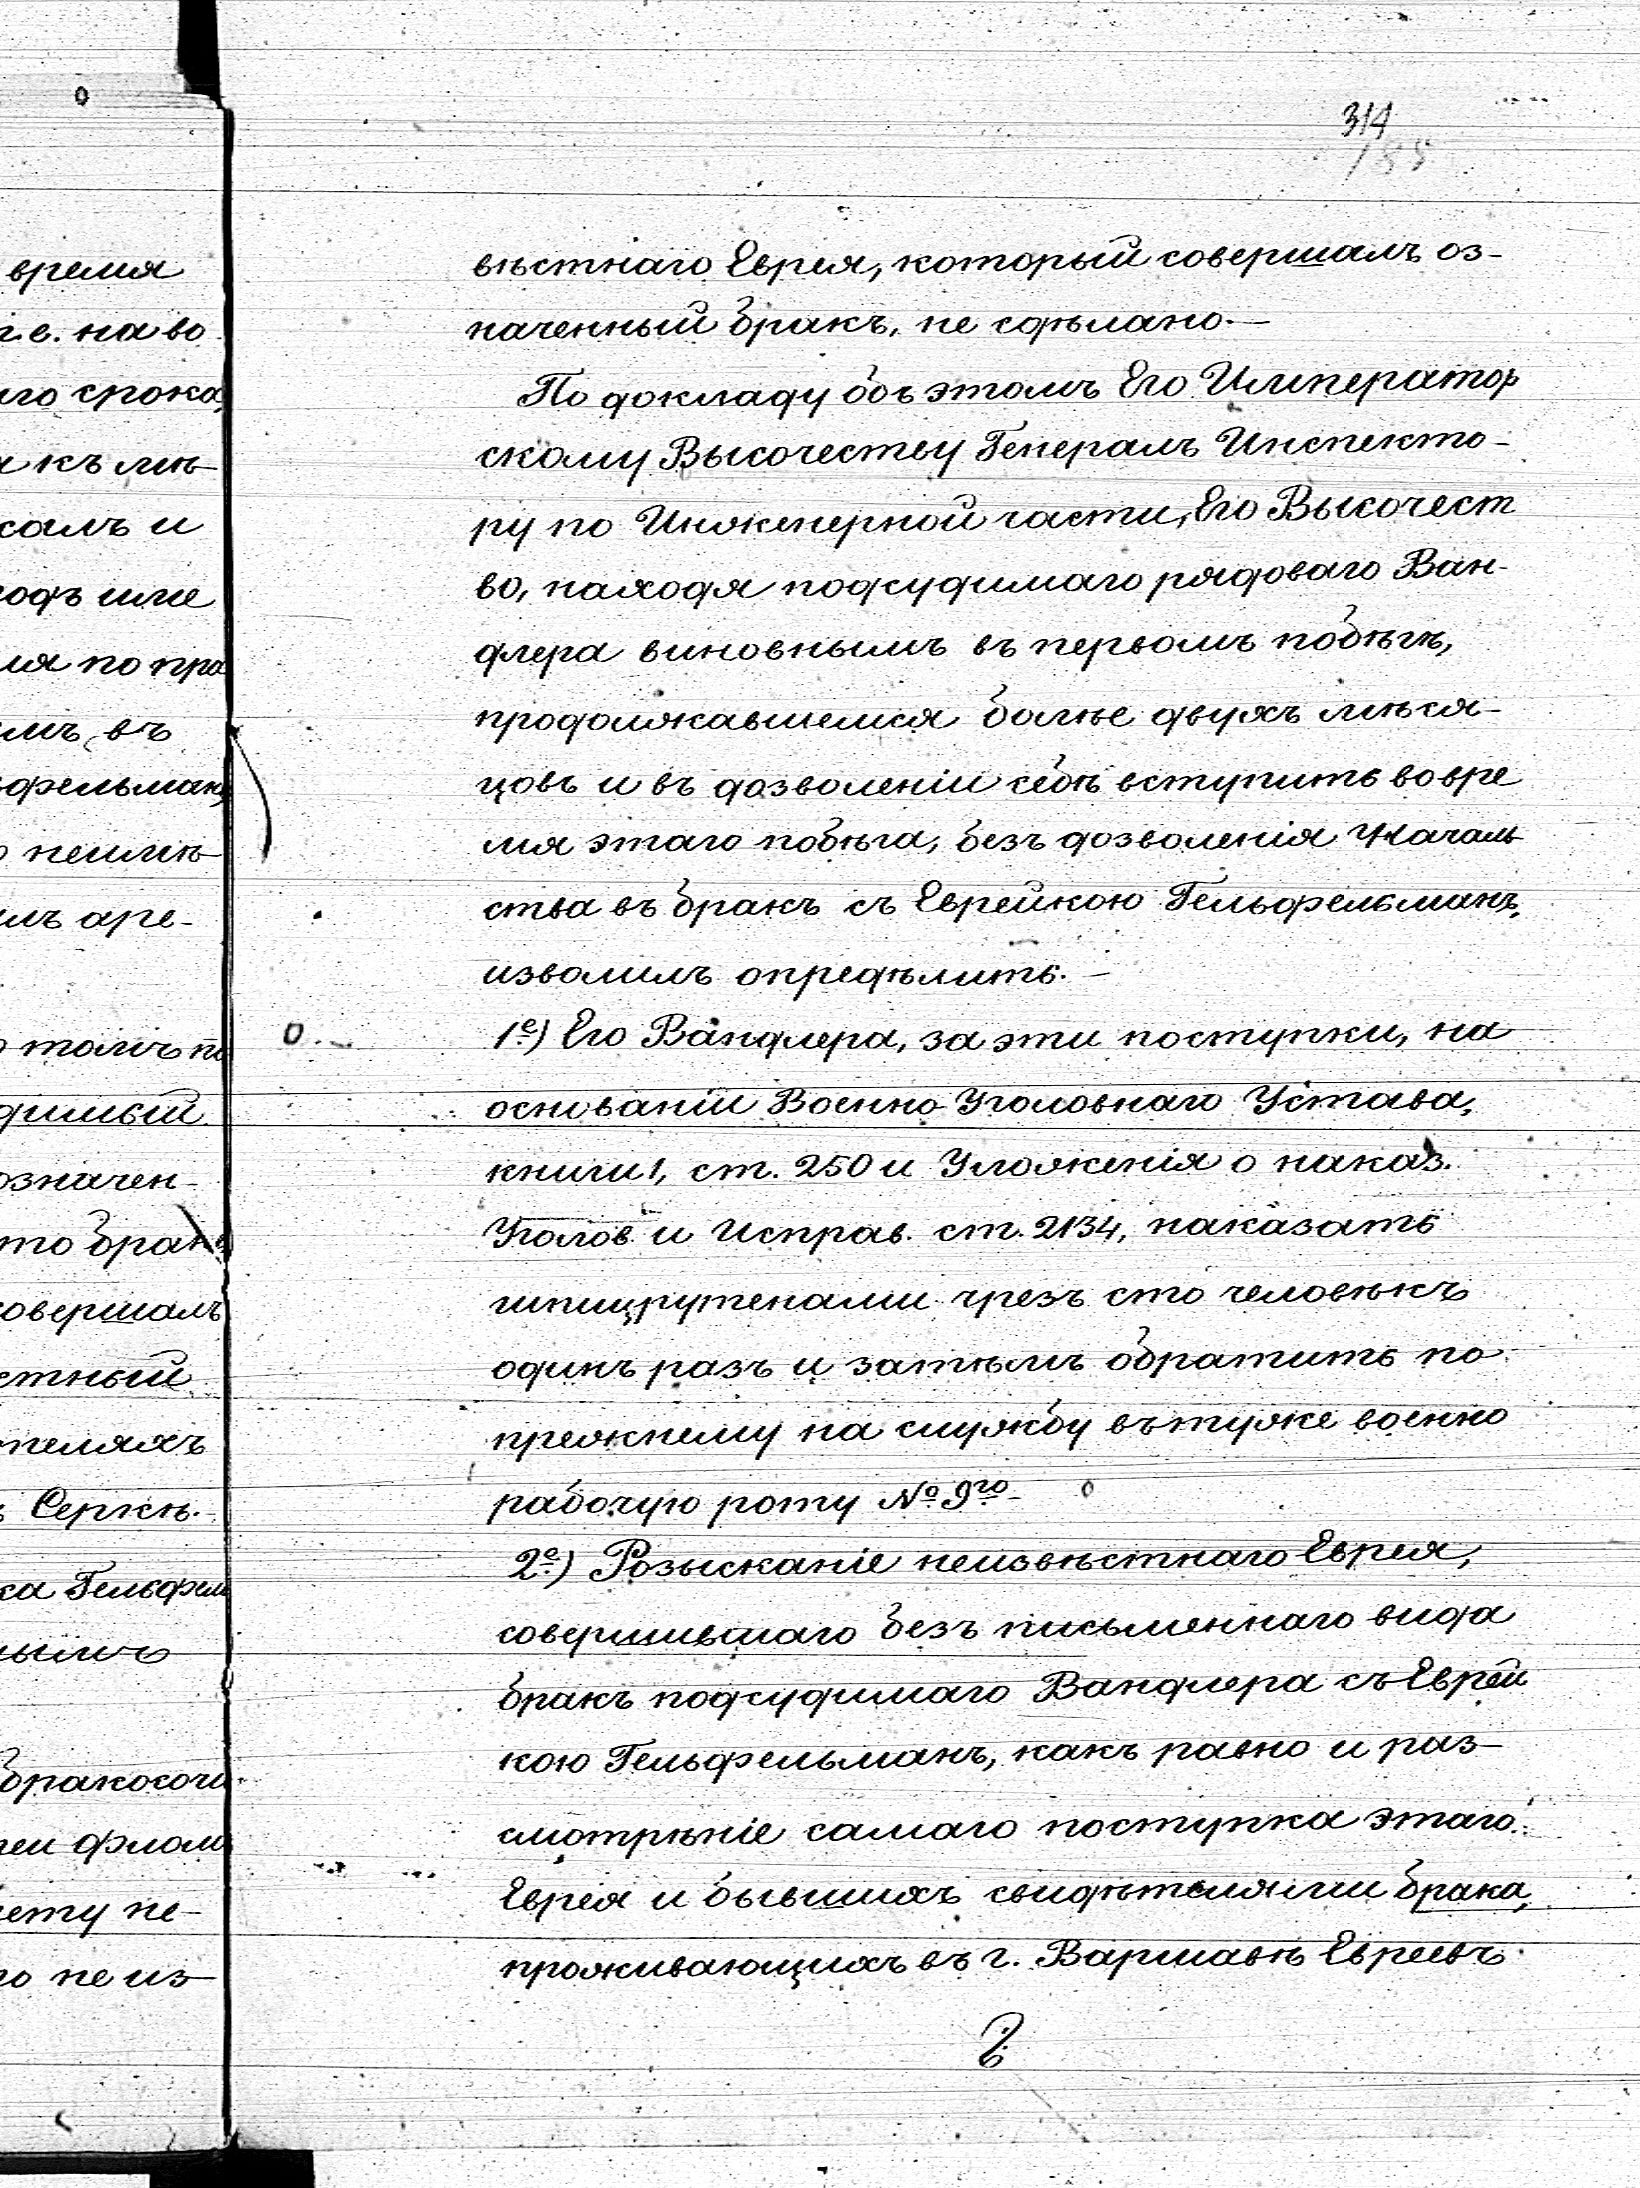 314
188
время
т.е. на во
го срока,
къ мѣ-
салъ и
ходъ или
ля по пра
въ
фельманъ
неимѣ-
аре-
томъ по
димый
означен-
что бракъ
совершалъ
стный
теляхъ
Серкѣ.
ка Гельфел
нымъ
бракосоче
ему не-
го не из-
вѣстнаго Еврея, который совершалъ оз-
наченный бракъ, не сдѣлано.—
По докладу объ этомъ Его Император
скому Высочеству Генералъ Инспекто-
ру по Инженерной части, Его Высочест
во, находя подсудимаго рядоваго Ван-
длера виновнымъ въ первомъ побѣгѣ,
продолжавшемся болѣе двухъ мѣся-
цовъ и въ дозволеніи себѣ вступить во вре
мя этаго побѣга, безъ дозволенія Началь
ства въ бракъ съ Еврейкою Гельфельманъ,
изволилъ опредѣлить.—
1е) Его Вандлера, за эти поступки, на
основаніи Военно Уголовнаго Устава,
книги 1, ст. 250 и Уложенія о наказ.
Уголов. и Исправ. ст. 2134, наказать
шпицрутенами чрезъ сто человѣкъ
одинъ разъ и затѣмъ обратить по
прежнему на службу въ туже военно
рабочую роту № 9го
2е) Розысканіе неизвѣстнаго Еврея,
совершившаго безъ письменнаго вида
бракъ подсудимаго Вандлера съ Еврей
кою Гельфельманъ, какъ равно и раз-
смотрѣніе самаго поступка этаго
Еврея и бывшихъ свидѣтелями брака,
проживающихъ въ г. Варшавѣ Евреевъ